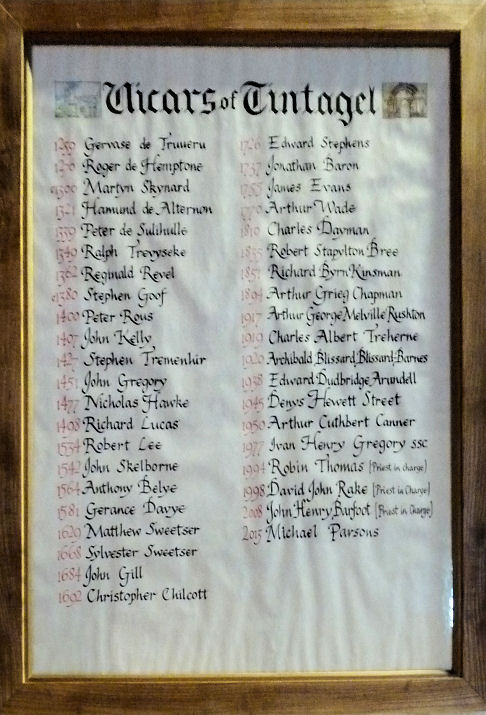 Vicars of Tintagel
1259 Gervase de Truueru
1270 Roger de Hemptone
c1300 Martyn Skynard
1321 Hamund de Alternon
1339 Peter de Sulihulle
1349 Ralph Trevyseke
1362 Reginald Revel
c1380 Stephen Goof
1400 Peter Rous
1407 John Kelly
1427 Stephen Tremenhir
1451 John Gregory
1477 Nicholas Hawke
1498 Richard Lucas
1534 Robert Lee
1542 John Skelborne
1564 Anthony Belye
1581 Gerance Davye
1629 Matthew Sweetser
1668 Sylvester Sweetser
1684 John Gill
1692 Christopher Chilcott
1726 Edward Stephens
1737 Jonathan Baron
James Evans
1770 Arthur Wade
1810 Charles Dayman
1835 Robert Stapylton Bree
1851 Richard Byrn Kinsman
1894 Arthur Grieg Chapman
1917 Arthur George Melville Rushton
1919 Charles Albert Treherne
1920 Archibald Blissard Blissard-Barnes
1938 Edward Dudbridge Arundell
1945 Denys Hewett Street
1950 Arthur Cuthbert Canner
1977 Ivan Henry Gregory SSC
1994 Robin Thomas [Priest in charge]
1998 David John Rake [Priest in Charge]
2008 John Henry Barfoot [Priest in Charge]
2013 Michael Parsons